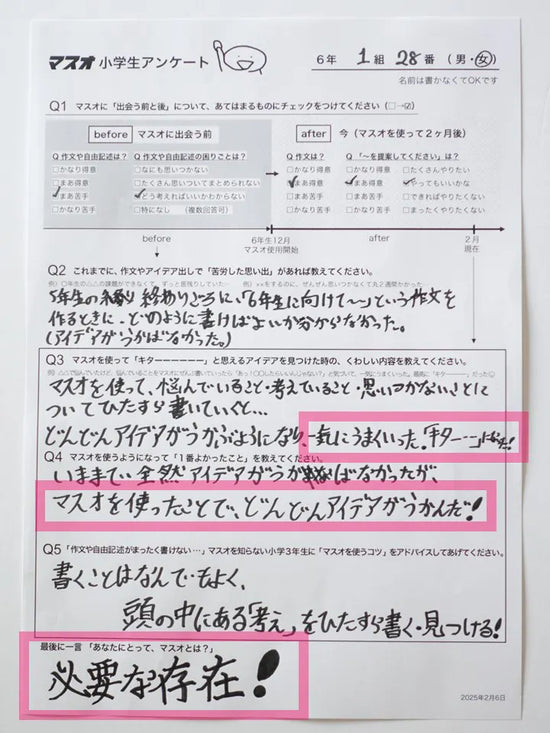 マスオ 小学生アンケート
6年 1組 28番 (男・女)
名前は書かなくてOKです
Q1 マスオに「出会う前と後」について、あてはまるものにチェックをつけてください (□→☑)
before マスオに出会う前
after 今 (マスオを使って2ヶ月後)
Q 作文や自由記述は? Q 作文や自由記述の困りごとは?
Q 作文は? Q 「~を提案してください」は?
□かなり得意 □なにも思いつかない
□かなり得意 □かなり得意 □たくさんやりたい
□まあ得意 □たくさん思いついてまとめられない
☑まあ得意 ☑まあ得意 ☑やってもいいかな
☑まあ苦手 ☑どう考えればいいかわからない
□まあ苦手 □まあ苦手 □できればやりたくない
□かなり苦手 □特になし (複数回答可)
□かなり苦手 □かなり苦手 □まったくやりたくない
before
6年生12月
マスオ使用開始
after
2月
現在
Q2 これまでに、作文やアイデア出しで「苦労した思い出」があれば教えてください。
5年生の終わりごろに、「6年生に向けて~」という作文を
作るときに、どのように書けばよいか分からなかった。
(アイデアがうかばなかった。)
Q3 マスオを使って「キターーーーーー」と思えるアイデアを見つけた時の、くわしい内容を教えてください。
マスオを使って、悩んでいること・考えていること・思いつかないことに
ついてひたすら書いていくと…
どんどんアイデアがうかぶようになり、一気にうまくいった。「キターーー」になった!
Q4 マスオを使うようになって「1番よかったこと」を教えてください。
いままで全然アイデアがうかばなかったが、
マスオを使ったことで、どんどんアイデアがうかんだ!
Q5 「作文や自由記述がまったく書けない…」マスオを知らない小学3年生に「マスオを使うコツ」をアドバイスしてあげてください。
書くことはなんでもよく、
頭の中にある「考え」をひたすら書く・見つける!
最後に一言 「あなたにとって、マスオとは?」
必要な存在!
2025年2月6日